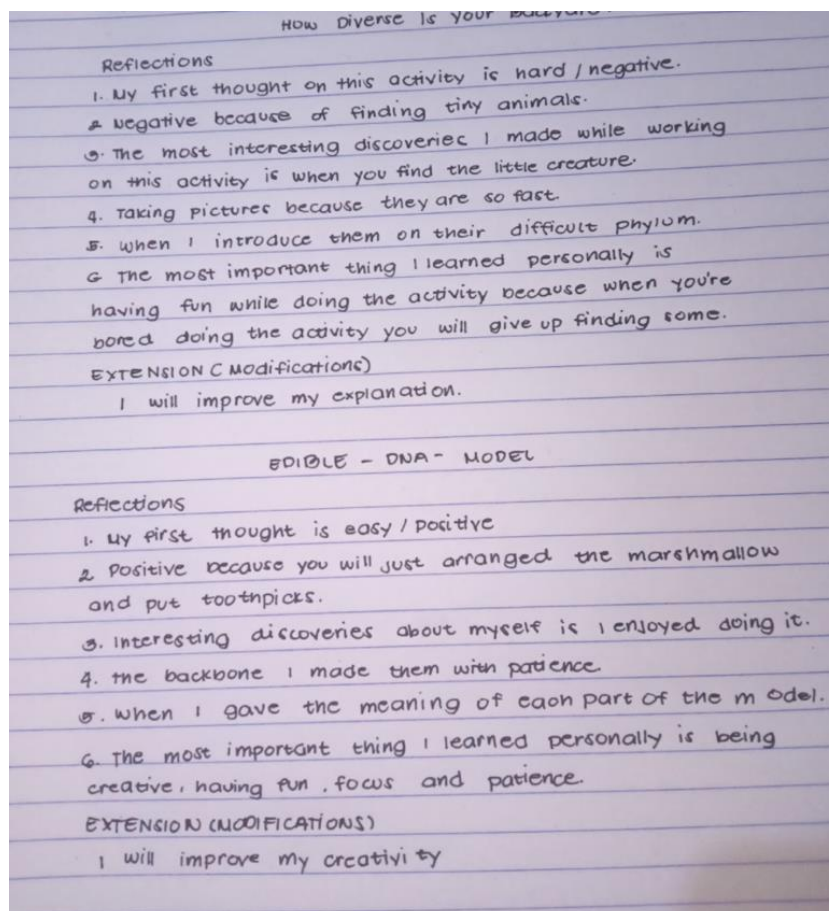 How Diverse Is Your
Reflections
1. My first thought on this activity is hard / negative.
2 Negative because of finding tiny animals.
3. The most interesting discoveries I made while working
on this activity is when you find the little creature.
4. Taking pictures because they are so fast.
5. When I introduce them on their difficult phylum.
6 The most important thing I learned personally is
having fun while doing the activity because when you're
bored doing the activity you will give up finding some.
EXTENSION ( Modifications)
I will improve my explanation.
EDIBLE - DNA - MODEL
Reflections
1. My first thought is easy / positive
2 Positive because you will just arranged the marshmallow
and put toothpicks.
3. Interesting discoveries about myself is I enjoyed doing it.
4. The backbone I made them with patience.
5. When I gave the meaning of each part of the model.
6. The most important thing I learned personally is being
creative, having fun, focus and patience.
EXTENSION (MODIFICATIONS)
I will improve my creativity